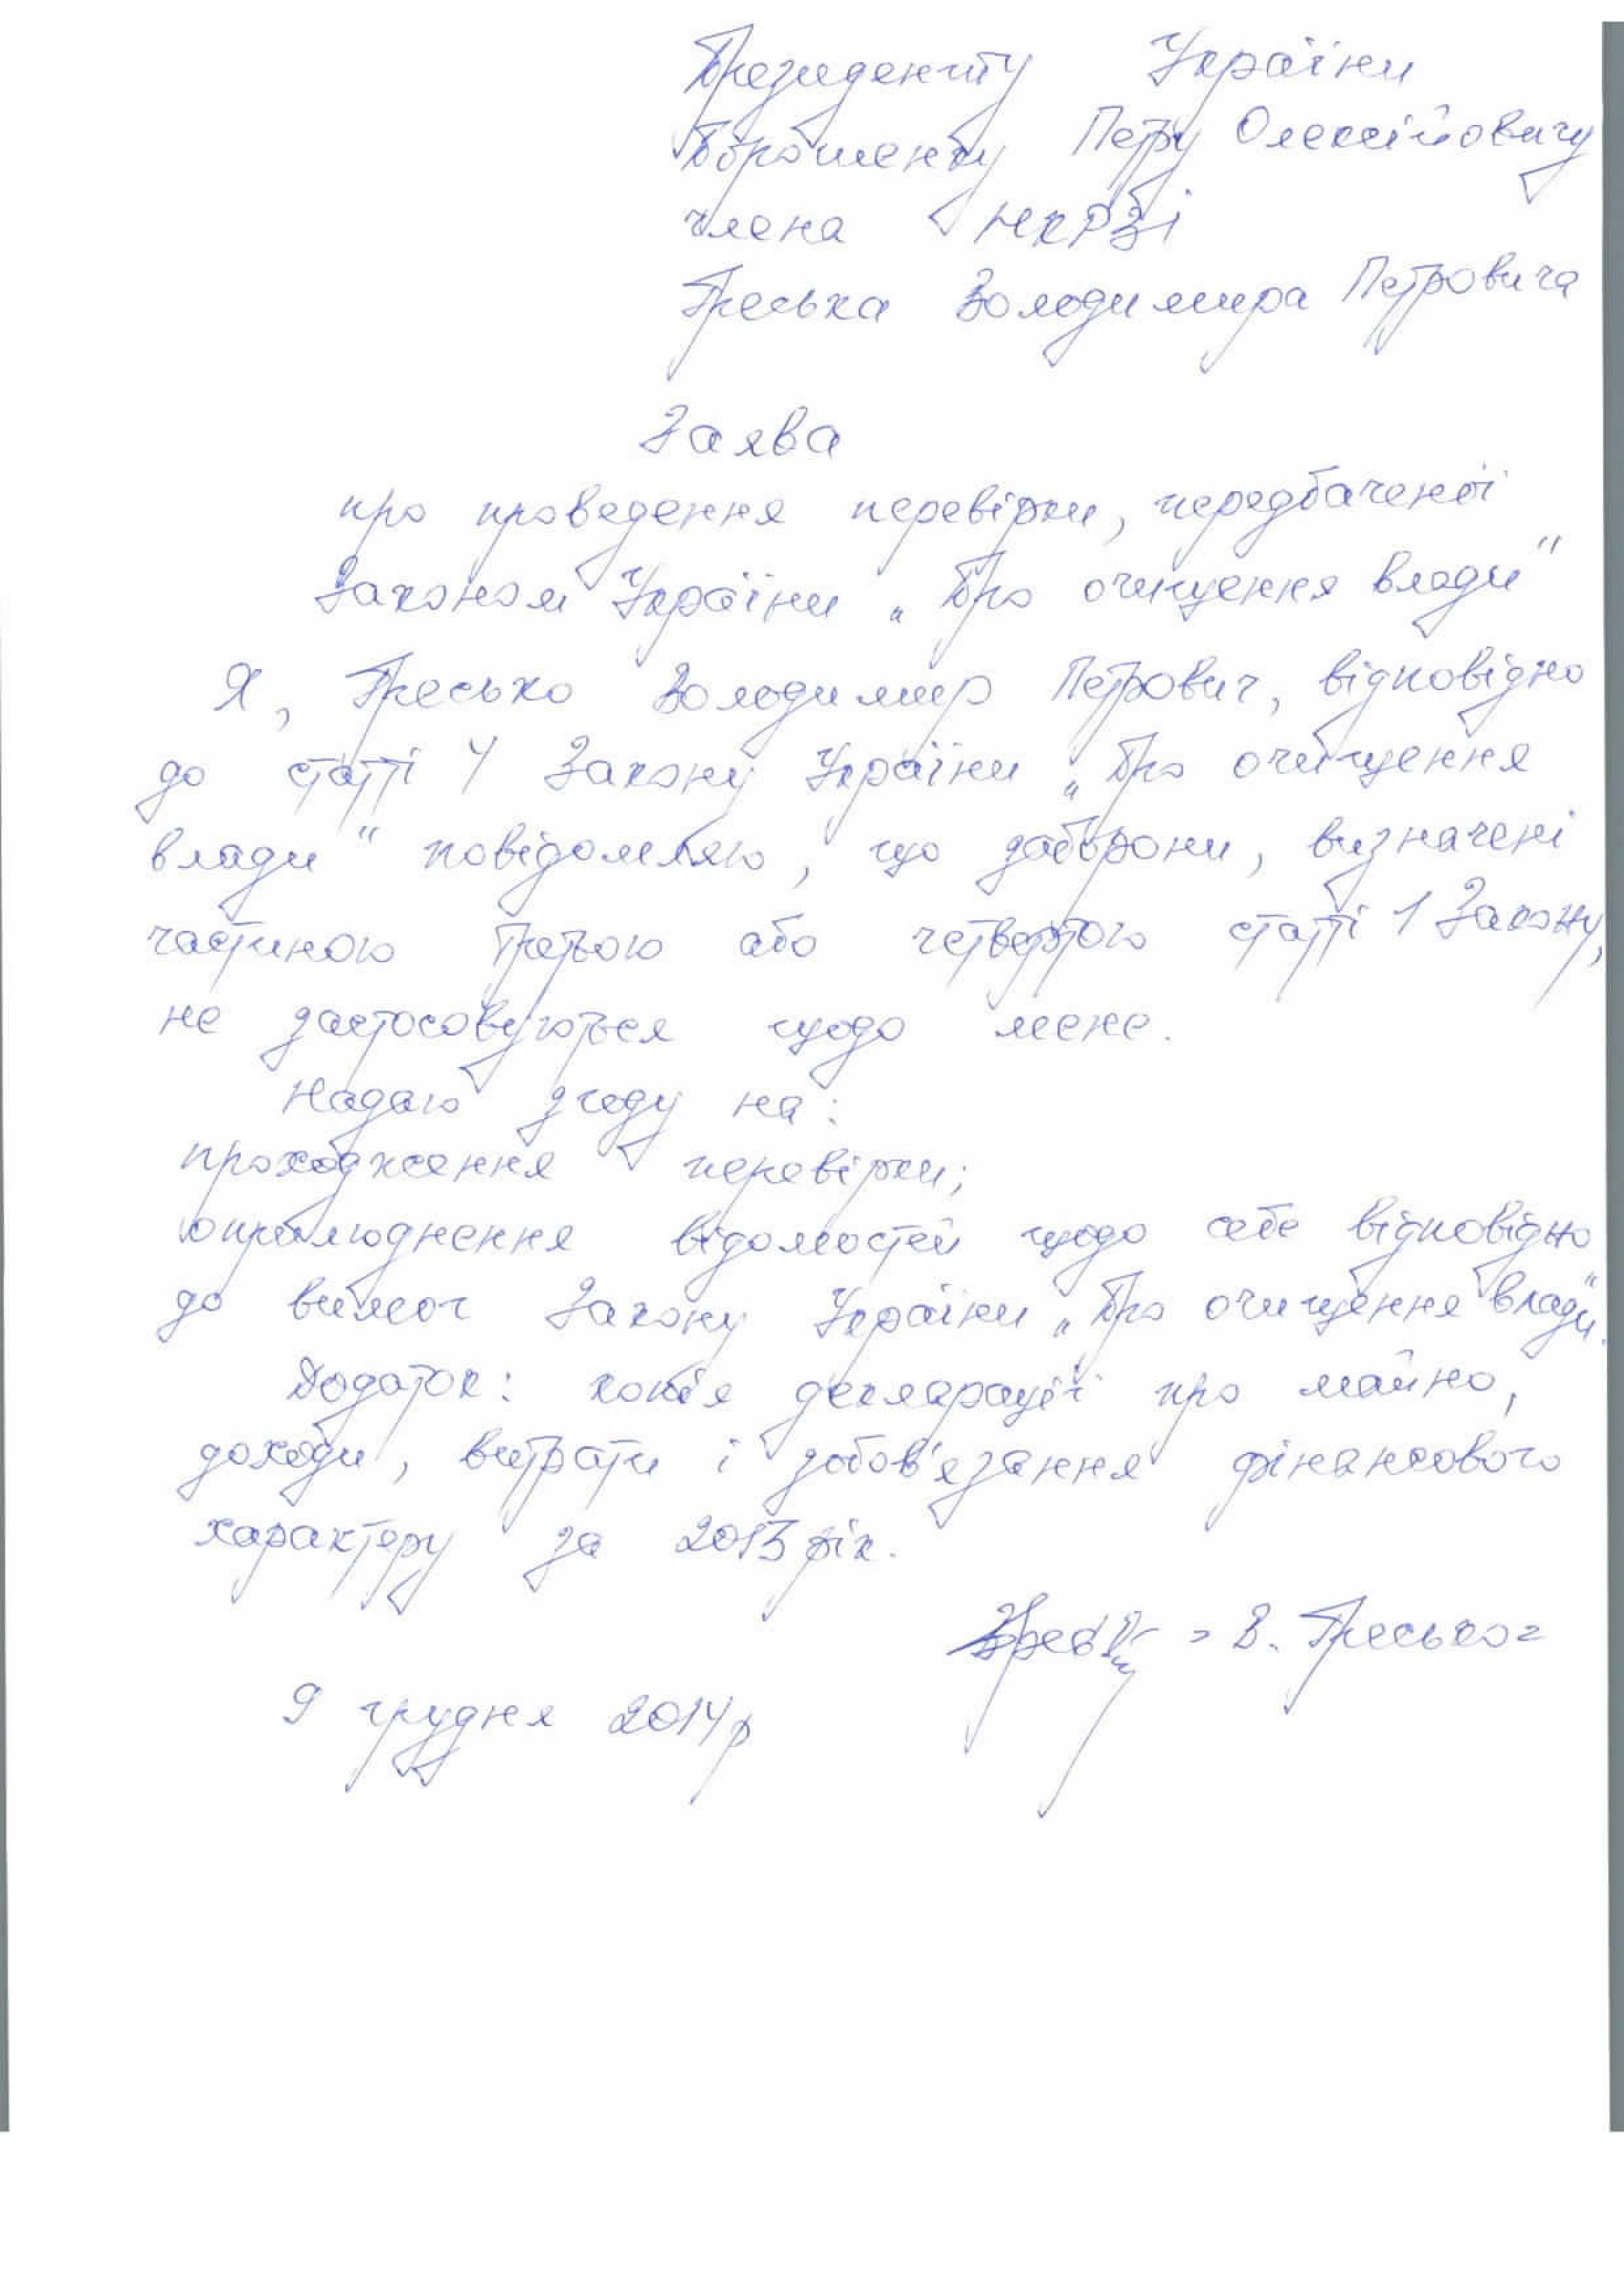 Президенту України
Порошенку Петру Олексійовичу
члена НКРЗІ
Треська Володимира Петровича
Заява
про проведення перевірки, передбаченої
Законом України „Про очищення влади"
Я, Тресько Володимир Петрович, відповідно
до статті 4 Закону України „Про очищення
влади" повідомляю, що заборони, визначені
частиною третьою або четвертою статті 1 Закону,
не застосовуються щодо мене.
Надаю згоду на:
проходження перевірки;
оприлюднення відомостей щодо себе відповідно
до вимог Закону України „Про очищення влади".
Додаток: копія декларації про майно,
доходи, витрати і зобов'язання фінансового
характеру за 2013 рік.
В. Тресько
9 грудня 2014 р